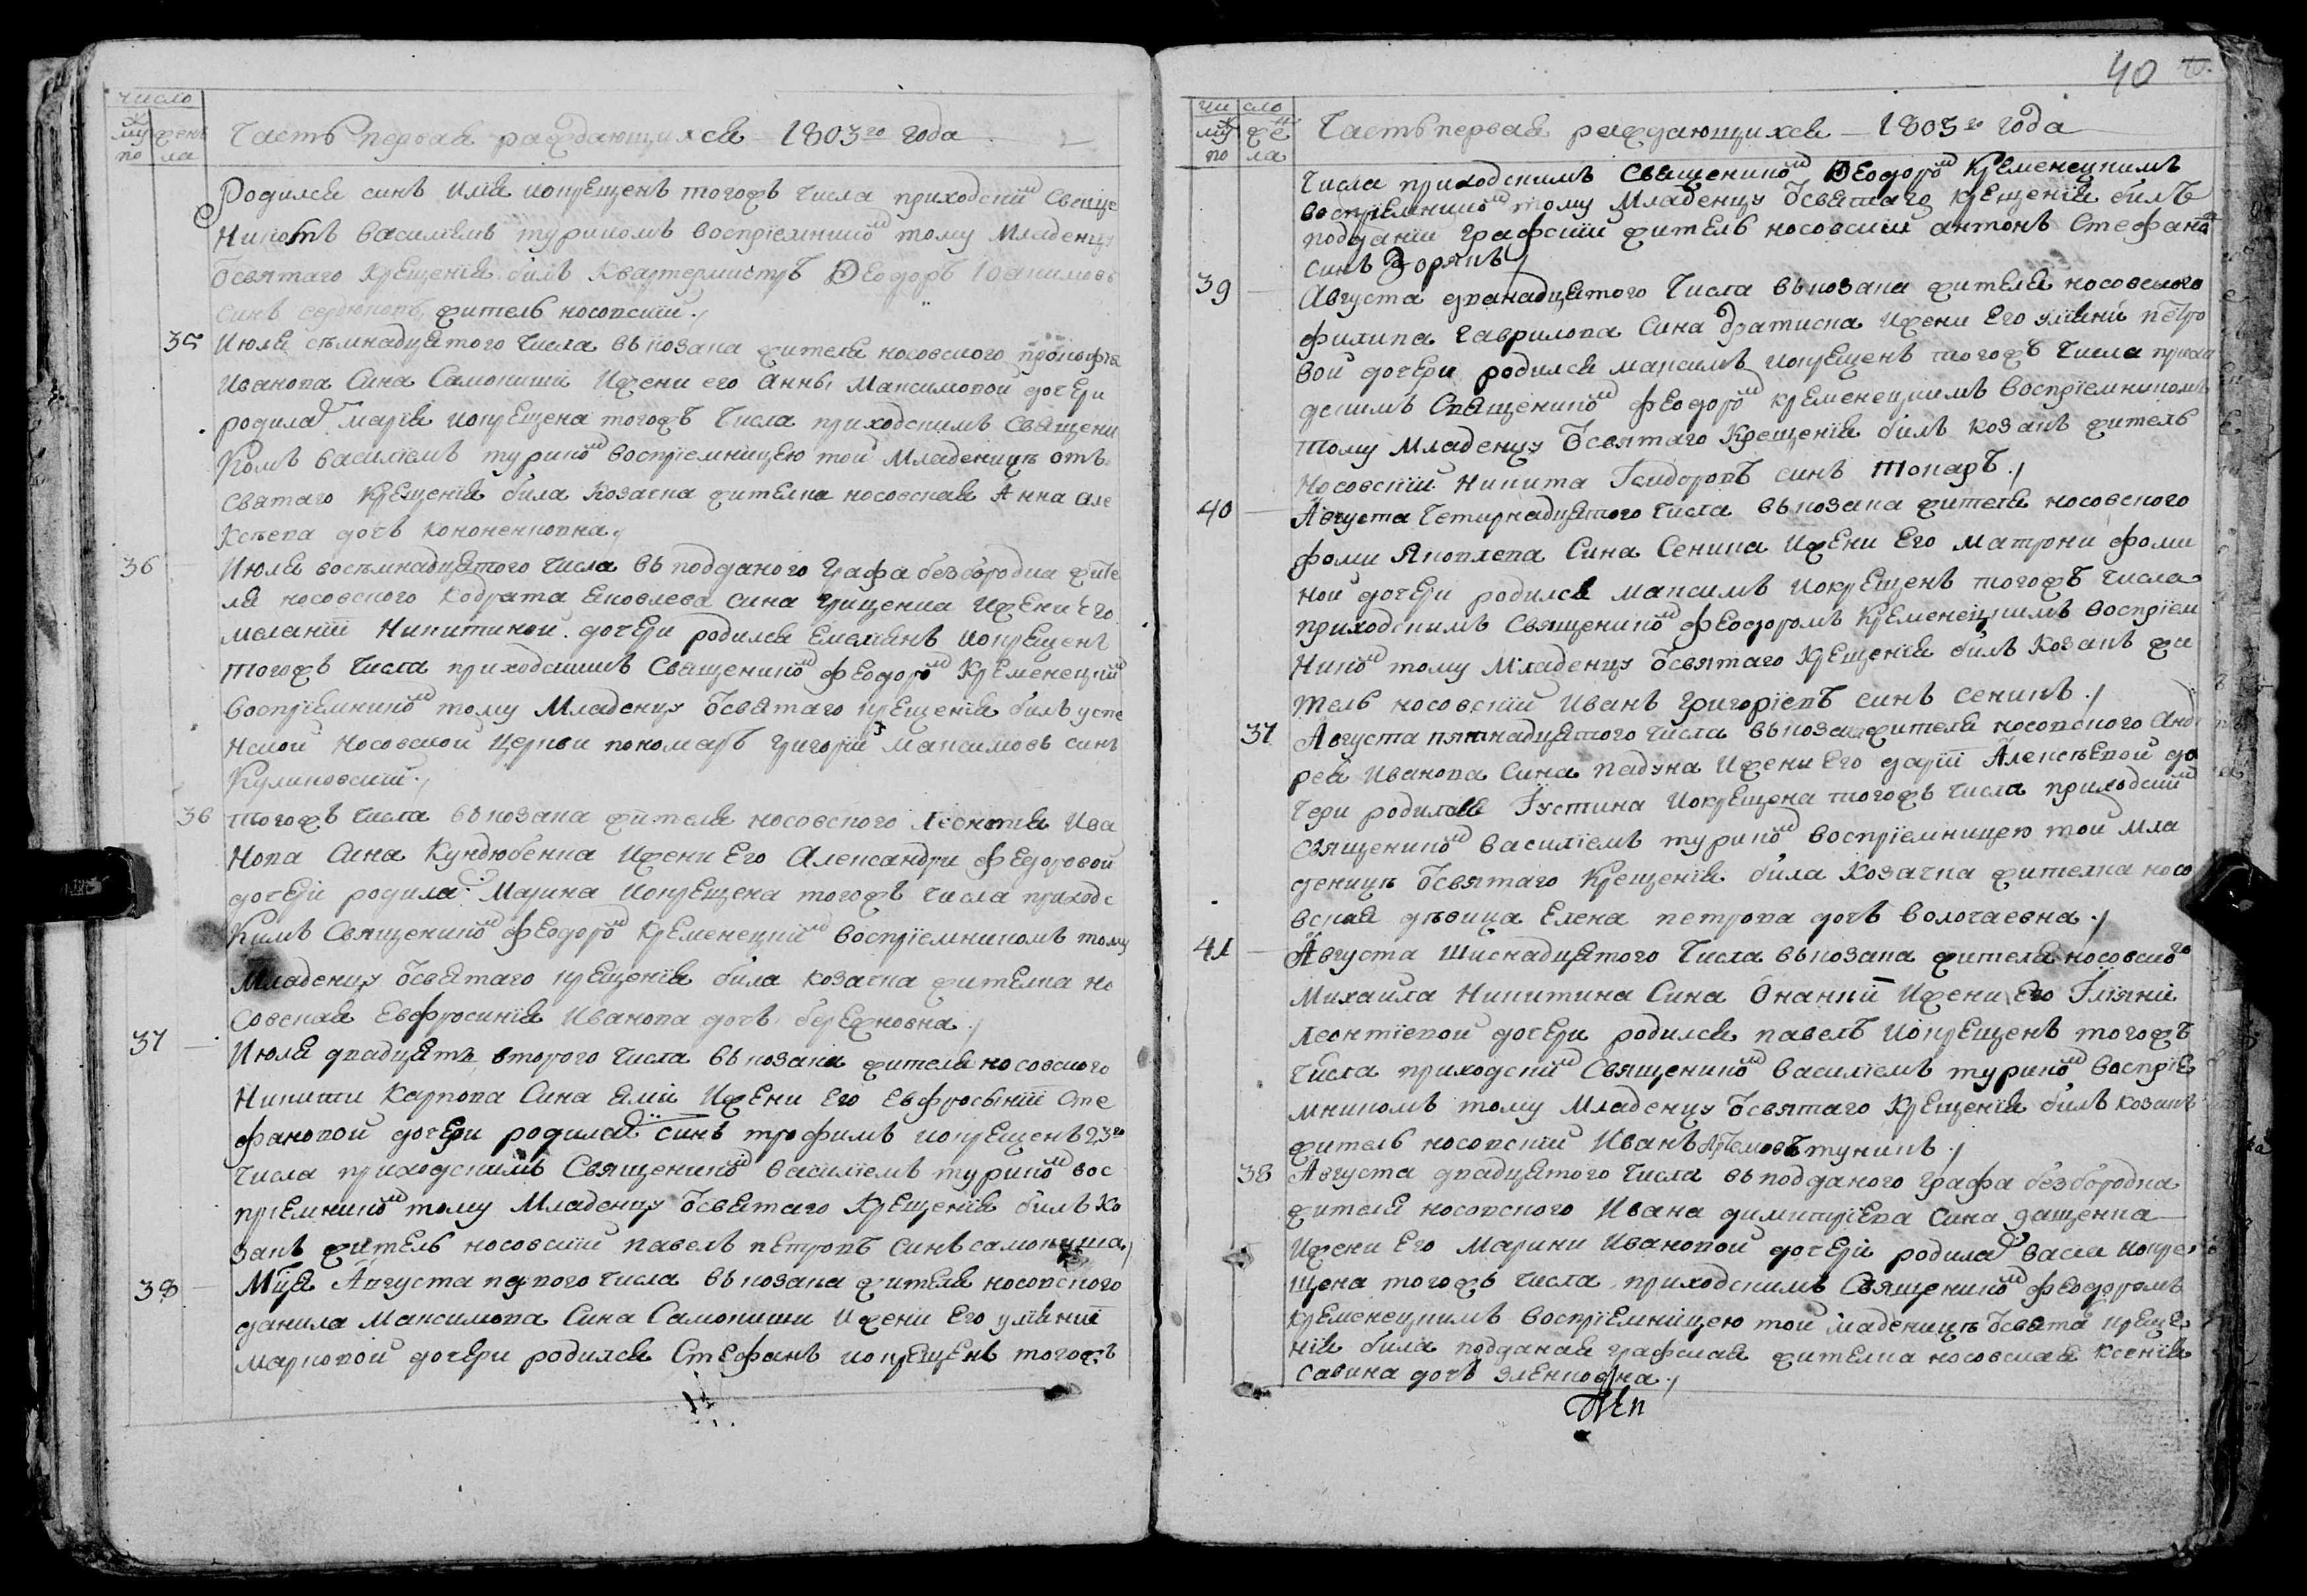 число
муж жень
по ла
Часть первая раждающихся 1803го года
Родился синъ Илия иокрещенъ тогожъ числа приходскимъ Свяще
Никомъ Василиемъ туриномъ воспрiемникомъ тому Младенцу
Ѿсвятаго Крещенiя билъ Квартермистръ Ѳеодоръ Iоакимовъ
Синъ сердюковъ, житель носовскiй
35 Июля сѣмнадцятого числа вькозака жителя носовского прокофія
Иванова Сина Самойлиши Ижени его Анны Максимовой дочери
родилась марiя иокрещена тогожъ числа приходскимъ Священи
Комъ василiемъ туриномъ воспрiемницею той Младеницѣ отъ
Святаго Крещенiя била Козачка жителка носовская Анна Але
Ксѣева дочъ кононенковна
36 Июля восѣмнадцятого числа вь подданого графа безбородка жите
ля носовского Кодрата Яковлева сина грищенка Ижени Его
меланiи Никитиной дочери родился Емелiянъ иокрещенъ
тогожъ числа приходскимъ Священикомъ феодоромъ Кременецкимъ
Воспрiемникомъ тому Младенцу Ѿсвятаго крещенiя билъ успе
Нской Носовской Церкви пономаръ григорiй Максимовъ синъ
Куликовскiй
36 тогожъ числа вькозака жителя носовского Леонтiя Ива
Нова Сина Кундюбенка Ижени Его Александри федоровой
дочери родилась Марина иокрещена тогожъ числа приходс
Кимъ Священикомъ феодоромъ Кременецкимъ воспрiемникомъ тому
Младенцу Ѿсвятаго крещенiя била козачка жителка но
совская Евфросинiя Иванова дочъ бережновна
37 Июля двадцять второго числа вькозака жителя носовского
Никити Карпова Сина Ялiи Ижени Его Евфросинiи Сте
фановой дочери родилась синъ трофимъ иокрещенъ 23го
числа приходскимъ Священикомъ василiемъ туриномъ вос
прiемникомъ тому Младенцу Ѿсвятаго Крещенiя билъ Ко
закъ житель носовскiй павелъ петровъ синъ самойлиша
38 Мця Августа первого числа вькозака жителя носовского
данила Максимова Сина Самойлиши Ижени Его улiянiи
марковой дочери родился Стефанъ иокрещенъ тогожъ
40
чи сло
муж жен
по ла
Часть первая раждающихся 1803го года
числа приходскимъ Священикомъ Ѳеодоромъ Кременецкимъ
воспрiемникомъ тому Младенцу Ѿсвятаго Крещенiя билъ
подданiй графскiй житель носовскiй антонъ Стефановъ
синъ Зоряпъ
39 Августа дванадцятого числа вькозака жителя носовского
филипа гаврилова Сина братиска Ижени Его улiяни петро
вой дочери родился максимъ иокрещенъ тогожъ числа прихо
дскимъ Священикомъ феодоромъ кременецкимъ воспрiемникомъ
тому Младенцу Ѿсвятаго Крещенiя билъ козакъ житель
Носовскiй Никита Iсидоровъ синъ Токаръ
40 Августа Четирнадцятого числа вькозака жителя носовского
фоми Яковлева Сина Сенича Ижени Его матрони фоми
ной дочери родился максимъ иокрещенъ тогожъ числа
приходскимъ Священикомъ феодоромъ Кременецкимъ воспрiем
Никомъ тому Младенцу Ѿсвятаго Крещенiя билъ Козакъ жи
тель носовскiй Иванъ григорiевъ синъ сеничъ
37 Августа пятнадцятого числа вькозака жителя носовского Анд
рея Иванова Сина падуна Ижени Его дарiи Алексѣевой до
чери родилася Iустина иокрещена тогожъ числа приходскимъ
Священикомъ василiемъ туриномъ воспрiемницею той Мла
деницѣ Ѿсвятаго Крещенiя била Козачка жителка носо
вская дѣвица Елена петрова дочъ волочаевна
41 Августа Шиснадцятого числа вькозака жителя носовского
Михаила Никитина Сина Онанкiи Ижени Его Iлiянiи
Леонтiевой дочери родился павелъ иокрещенъ тогожъ
числа приходскимъ Священикомъ василiемъ туриномъ воспрiе
мникомъ тому Младенцу Ѿсвятаго Крещенiя билъ козакъ
житель носовскiй Иванъ Артемовъ тупикъ
38 Августа двадцятого числа вь подданого графа безбородка
жителя носовского Ивана димитрiева Сина дащенка
Ижени Его Марини Ивановой дочери родилась Васса иокре
щена тогожъ числа приходскимъ Священикомъ феодоромъ
кременецкимъ воспрiемницею той младеницѣ Ѿсвята креще
нiя била подданая графская жителка носовская Ксенiя
Савина дочъ зленковна